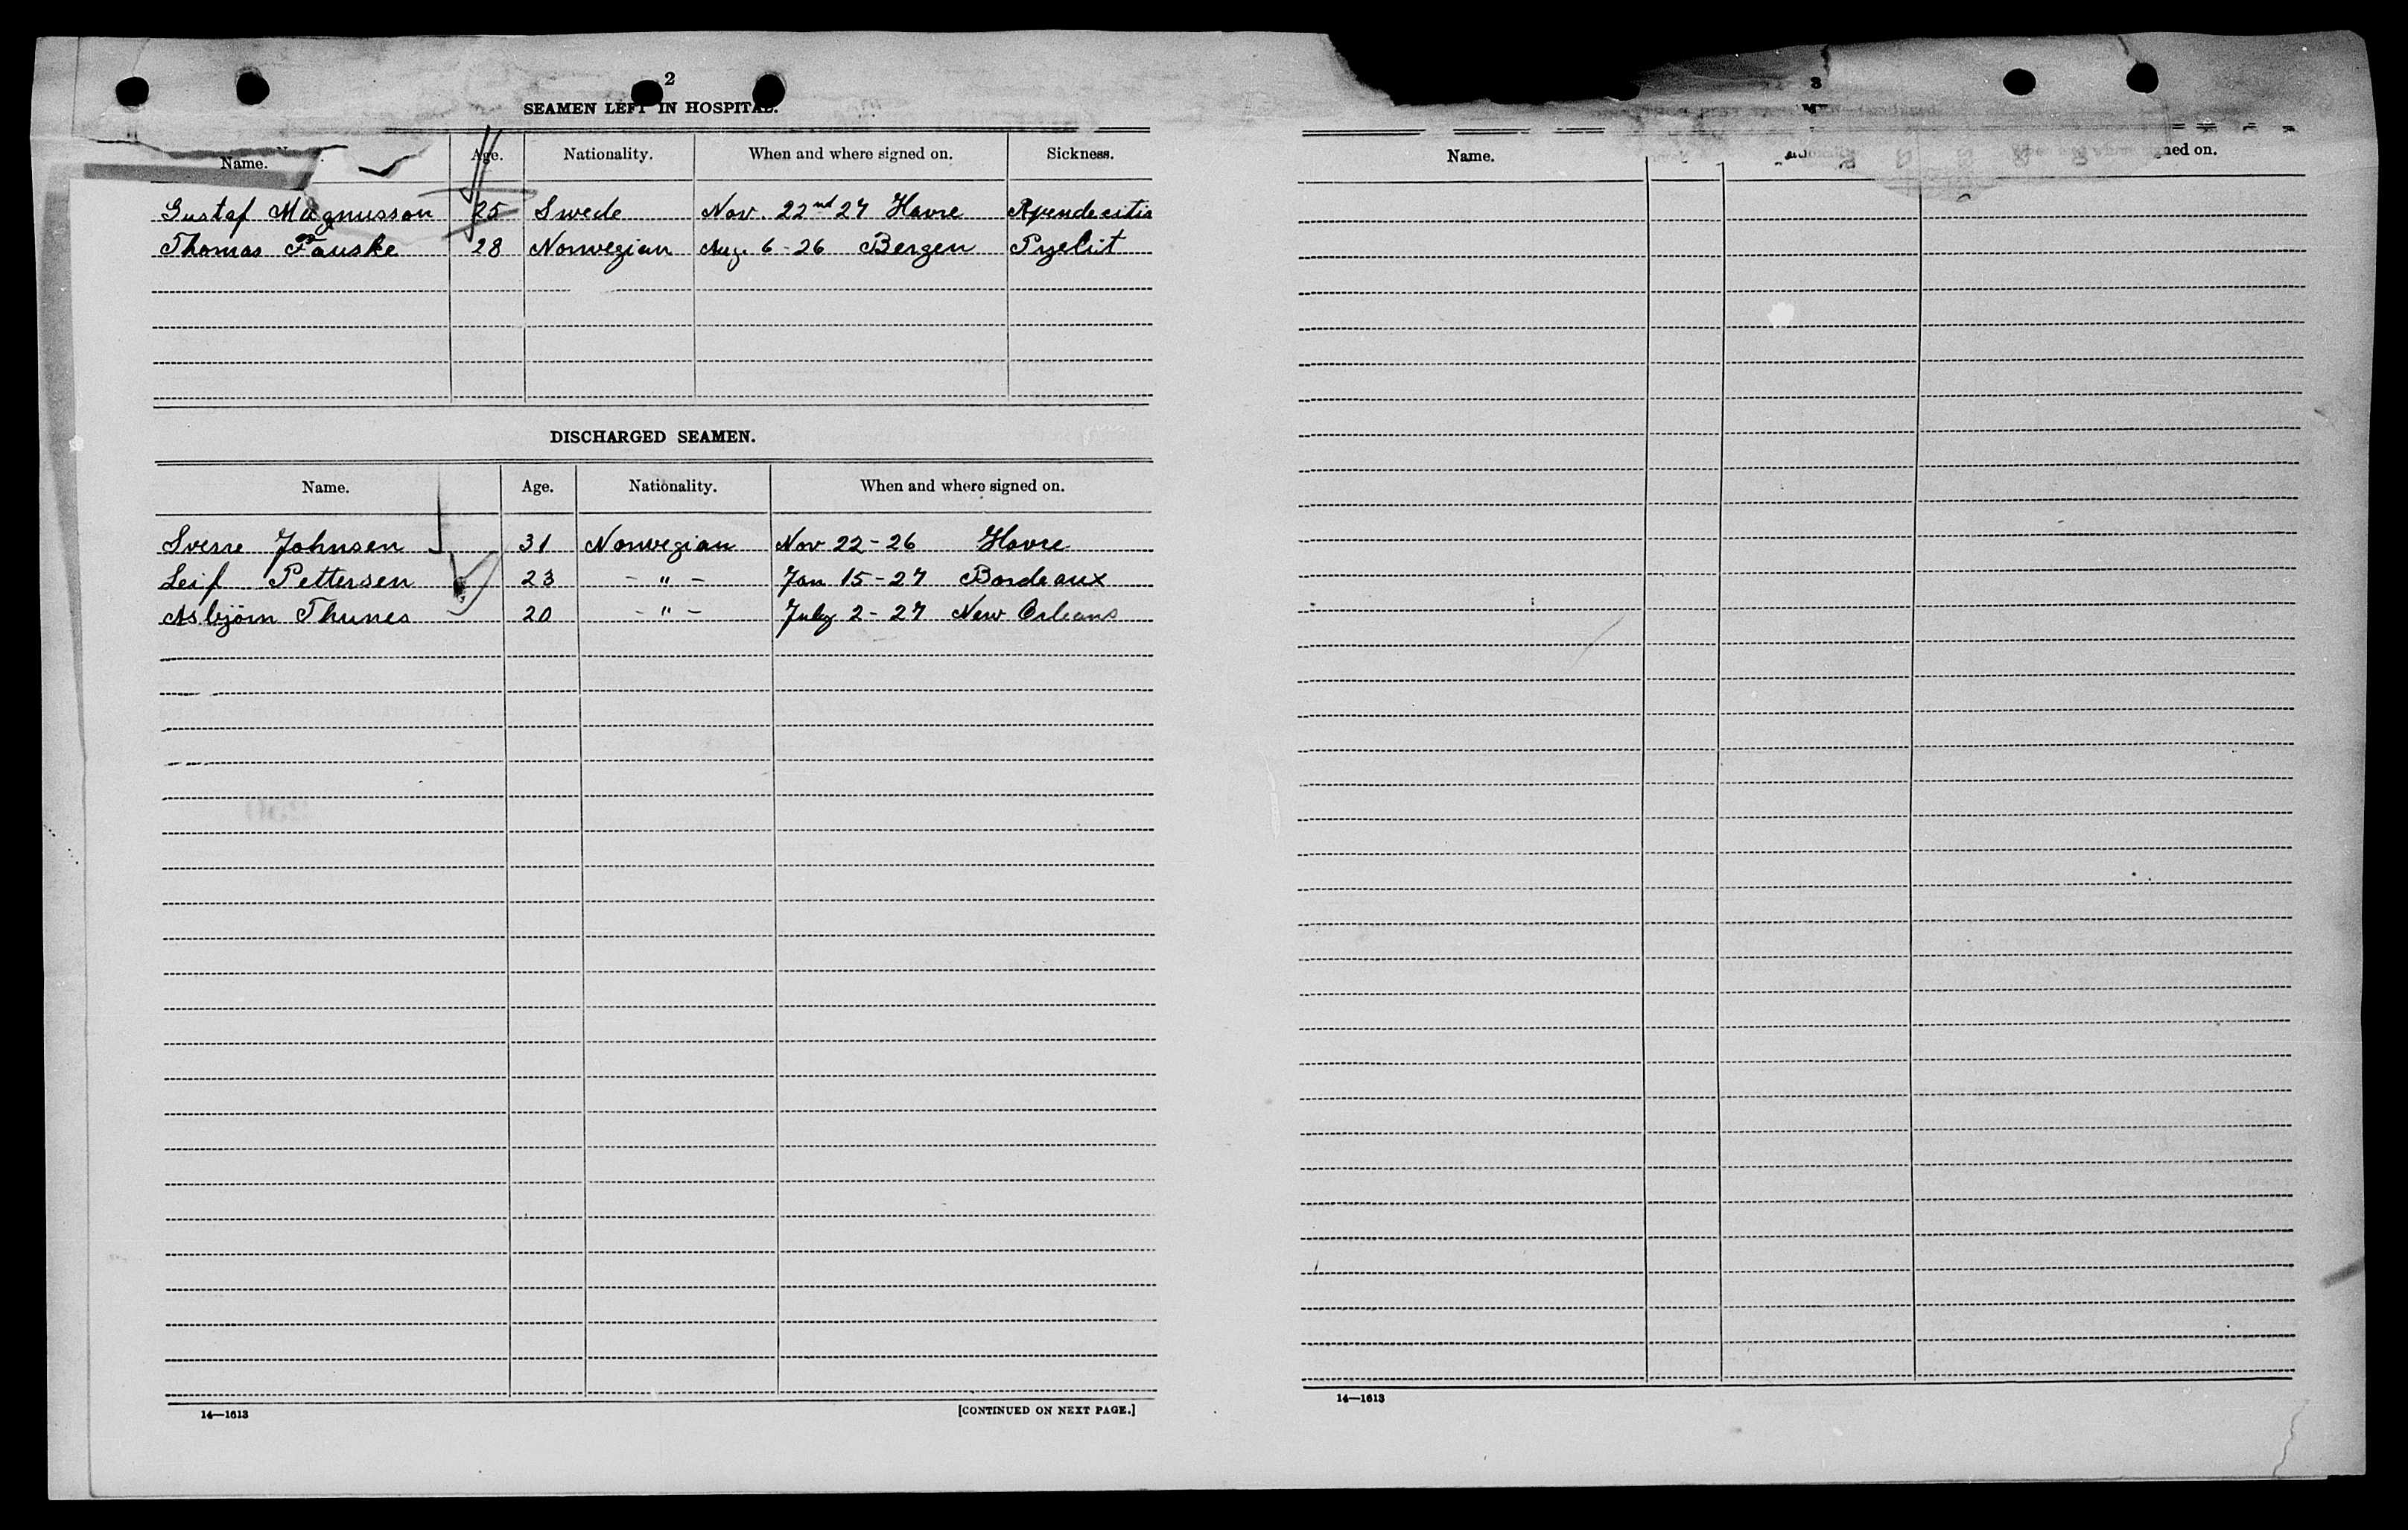 2
SEAMEN LEFT IN HOSPITAL.
Name. Age. Nationality. When and where signed on. Sickness.
Gustaf Magnusson 25 Swede Nov. 22nd 27 Havre Apendecitis
Thomas Fauske 28 Norwegian Aug. 6-26 Bergen Pyelit
DISCHARGED SEAMEN.
Name. Age. Nationality. When and where signed on.
Sverre Johnsen 31 Norwegian Nov 22-26 Havre
Leif Pettersen 23 - " - Jan 15-27 Bordeaux
Asbjörn Thunes 20 - " - July 2-27 New Orleans
14—1613 [CONTINUED ON NEXT PAGE.]
3
Name. ned on.
14—1613